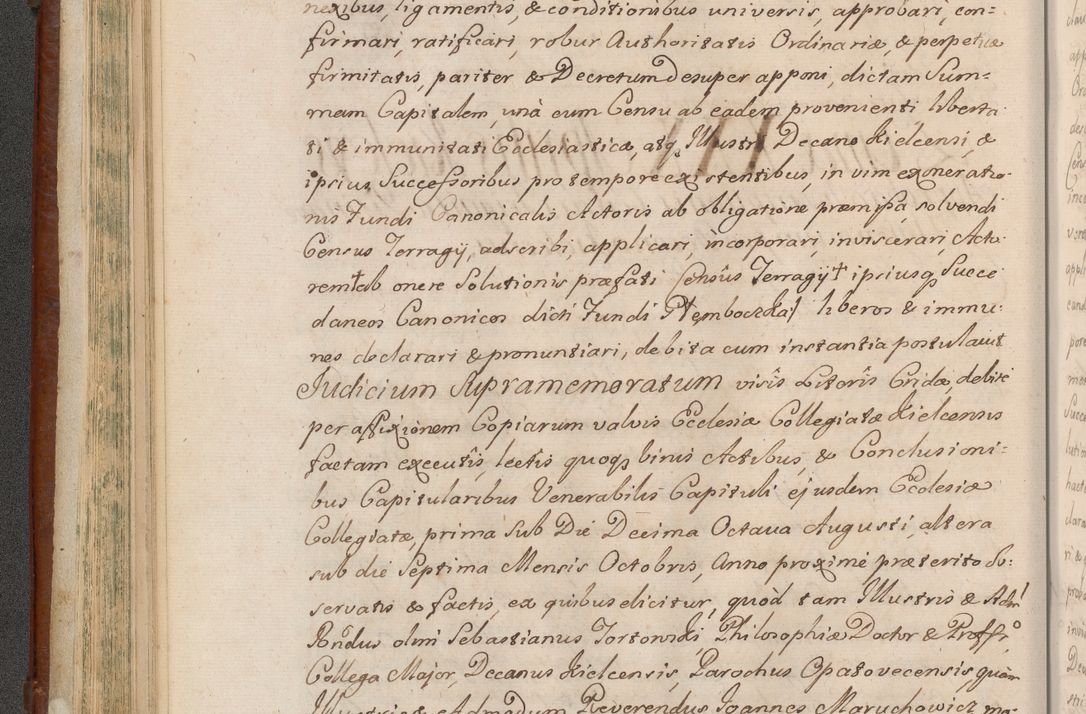 nexibus, ligamentis, & conditionibus universis, approbari, con=
firmari, ratificari, robur Authoritatis Ordinariæ, & perpetuæ
firmitatis, pariter & Decretum desuper apponi, dictam Sum=
mam Capitalem, unà cum Censu ab eadem provenienti liberta
ti & immunitati Ecclesiasticæ, atq, Illustri Decano Kielcensi, &
ipsius Successoribus pro tempore existentibus, in vim exoneratio-
nis Fundi Canonicalis Actoris ab obligatione præmissa, solvendi
Census Terragij, adscribi, applicari, incorporari, inviscerari, Acto-
rem ab onere Solutionis præfati Census Terragij ipsiusq Succe
daneos Canonicos dicti Fundi liberos & immu-
nes declarari & pronuntiari, debita cum instantia postulavit
Judicium Supramemoratum visis Literis Cridæ, debite
per affixionem Copiarum valvis Ecclesiæ Collegiatæ Kielcensis
factam executis, lectis quoq binis Actibus, & Conclusioni-
bus Capitularibus Venerabilis Capituli ejusdem Ecclesiæ
Collegiatæ, prima sub Die Decima Octava Augusti, altera
sub die Septima Mensis Octobris, Anno proximè præterito
servatis & factis, ex quibus elicitur, quòd tam Illustris & Adm
Rondus olim Sebastianus Philosophiæ Doctor &
Collega Major, Decanus Kielcensis, Parochus Opatovecensis, quàm
Illustris & Admodum Reverendus Joannes Maruchowicz